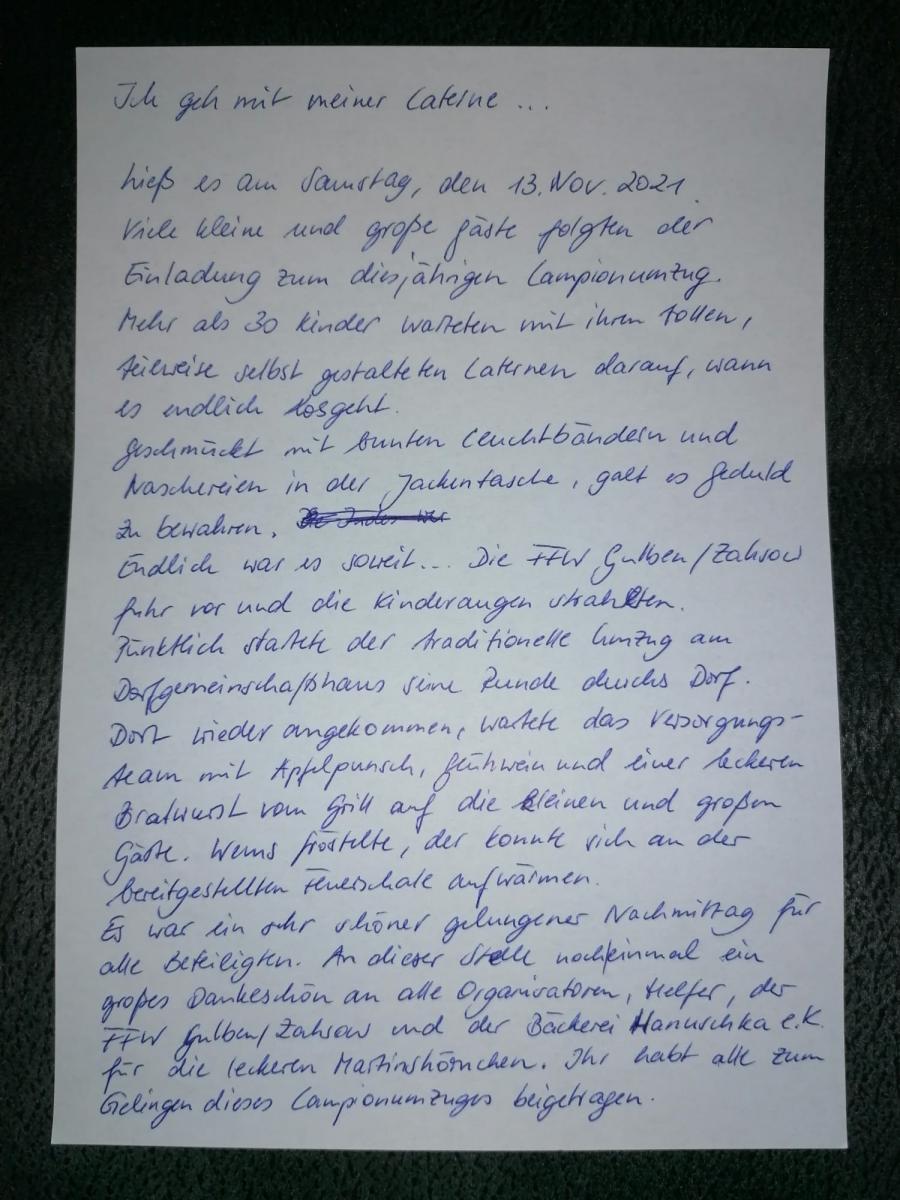 Ich geh mit meiner Laterne ...
hieß es am Samstag, den 13. Nov. 2021.
Viele kleine und große Gäste folgten der
Einladung zum diesjährigen Lampionumzug.
Mehr als 30 Kinder warteten mit ihren tollen,
teilweise selbst gestalteten Laternen darauf, wann
es endlich losgeht.
Geschmückt mit bunten Leuchtbändern und
Naschereien in der Jackentasche, galt es Geduld
zu bewahren.
Endlich war es soweit... Die FFW Gulben/Zahsow
fuhr vor und die Kinderaugen strahlten.
Pünktlich startete der traditionelle Umzug am
Dorfgemeinschaftshaus seine Runde durchs Dorf.
Dort wieder angekommen, wartete das Versorgungs-
team mit Apfelpunsch, Glühwein und einer leckeren
Bratwurst vom Grill auf die kleinen und großen
Gäste. Wems fröstelte, der konnte sich an der
bereitgestellten Feuerschale aufwärmen.
Es war ein sehr schöner gelungener Nachmittag für
alle Beteiligten. An dieser Stelle noch einmal ein
großes Dankeschön an alle Organisatoren, Helfer, der
FFW Gulben/Zahsow und der Bäckerei Hanuschka e.K.
für die leckeren Martinshörnchen. Ihr habt alle zum
Gelingen dieses Lampionumzuges beigetragen.